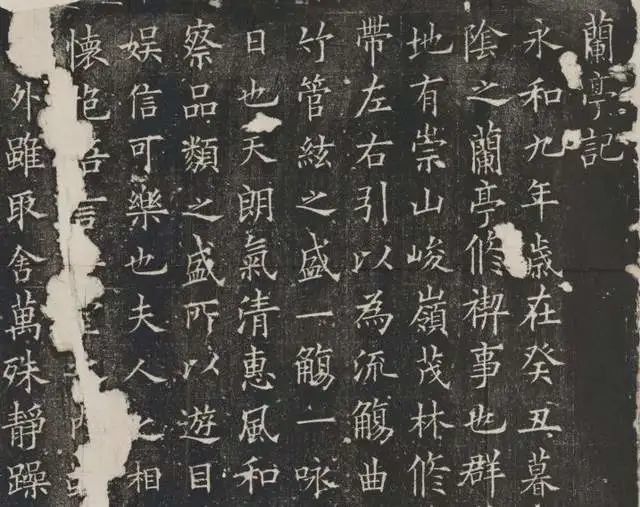 蘭亭記
永和九年歲在癸丑暮
陰之蘭亭修禊事也群
地有崇山峻嶺茂林修
帶左右引以為流觴曲
竹管絃之盛一觴一咏
日也天朗氣清惠風和
察品類之盛所以遊目
娛信可樂也夫人之相
懷抱悟言
外雖取舍萬殊靜躁